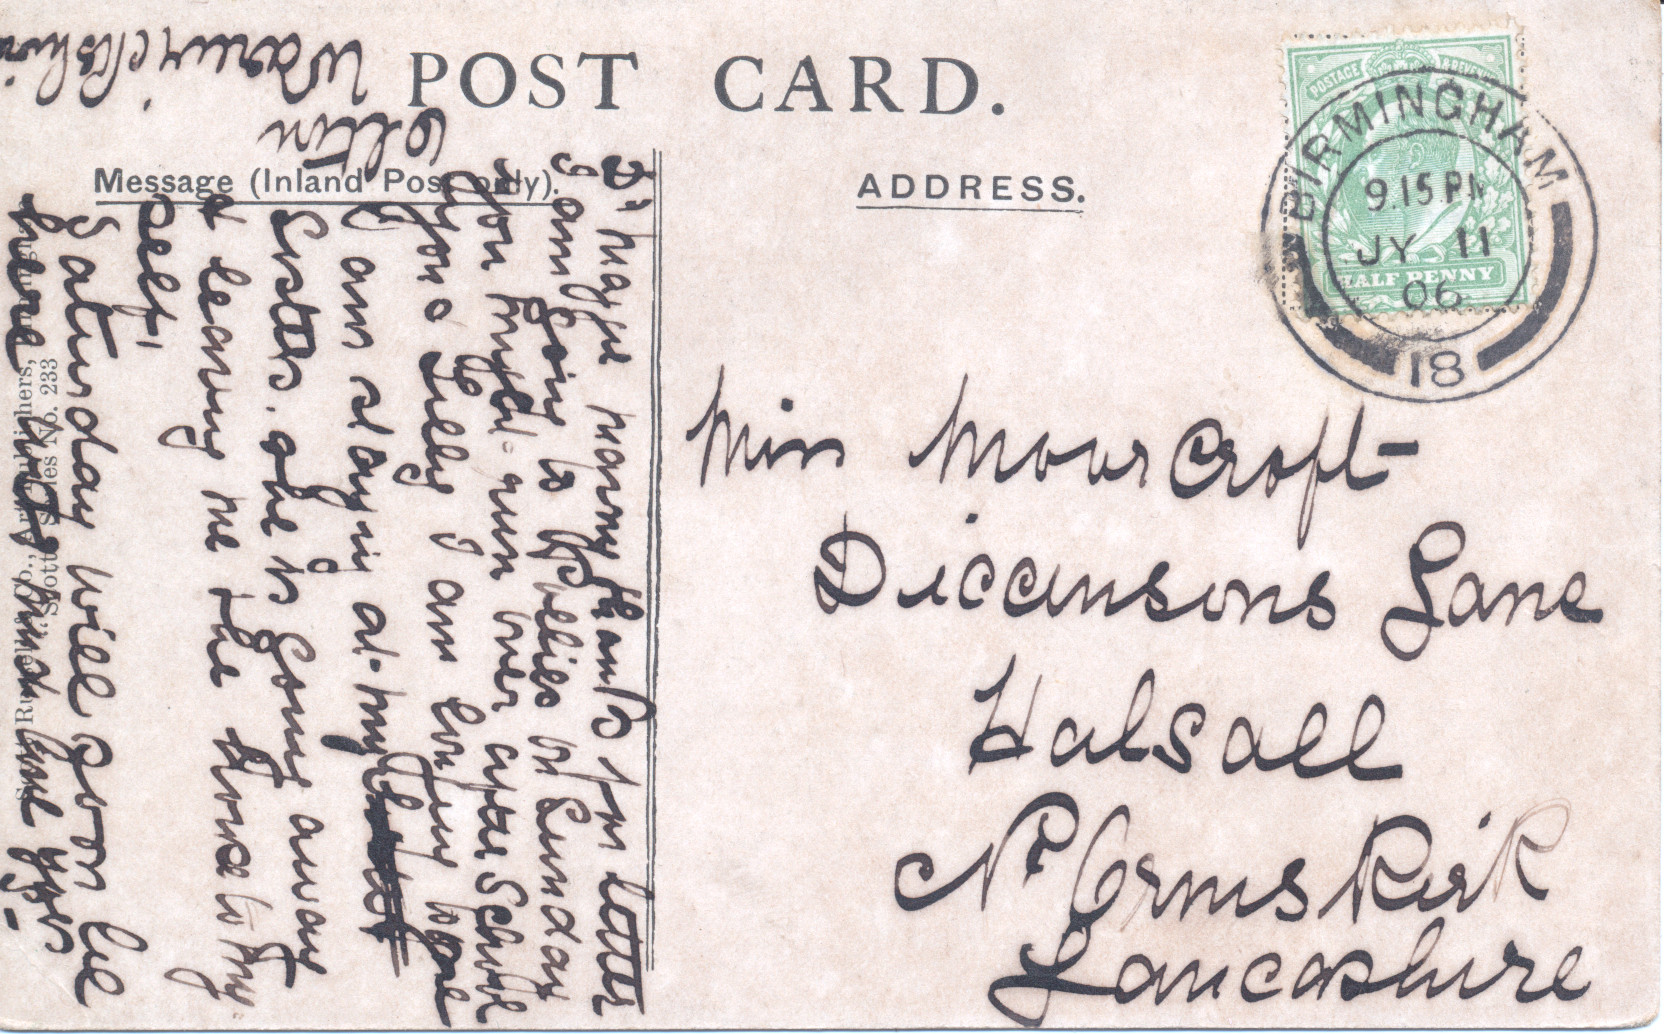 POST CARD.
Message (Inland Post only).
ADDRESS.
POSTAGE & REVENUE
HALF PENNY
BIRMINGHAM
9.15 PM
JY 11
06
18
Miss Moorcroft
Diccensons Lane
Halsall
Nr Ormskirk
Lancashire
Olton
Warwickshire
Dr Maggie many thanks for letter
I am going to on Sunday
you might run over after School
you & Lilly I am hoping
I am staying at my
Sisters. she is going away
& leaving me the house to my
self,
Saturday will soon be
here
Scott Russell & Co., Art Publishers, Birmingham.
"Scott" Series No. 233